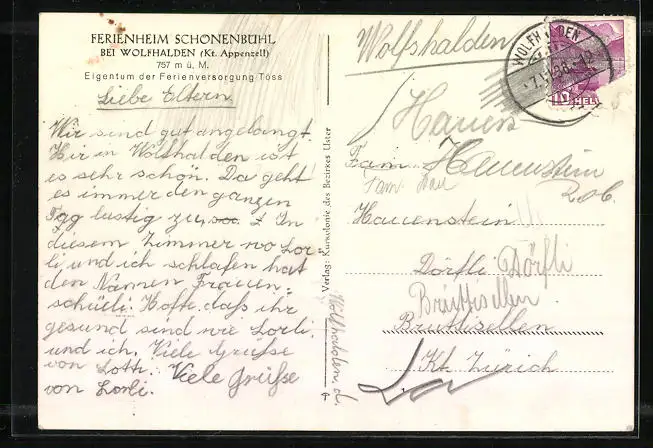 FERIENHEIM SCHÖNENBÜHL
BEI WOLFHALDEN (Kt. Appenzell)
757 m ü. M.
Eigentum der Ferienversorgung Töss
Liebe Eltern
Wir sind gut angelangt.
Hir in Wolfhalden ist
es sehr schön. Da geht
es immer den ganzen
Tag lustig zu, In
diesem Zimmer wo Lor-
li und ich schlafen hat
den Namen Frauen=
schüeli. Hoffe daſs ihr
gesund sind wie Lorli
und ich. Viele Grüſse
von Lotti. Viele Grüſse
von Lorli.
Verlag: Kurkolonie des Bezirkes Uster
Wolfshalden
WOLFHALDEN
10
HELV
Hauens
Fam. Hauenstein
Fam. Hau
Rob.
Hauenstein
Dörfli Dörfli
Brüttisellen
Brüttisellen
Kt. Zürich
Wolfhalden, d.